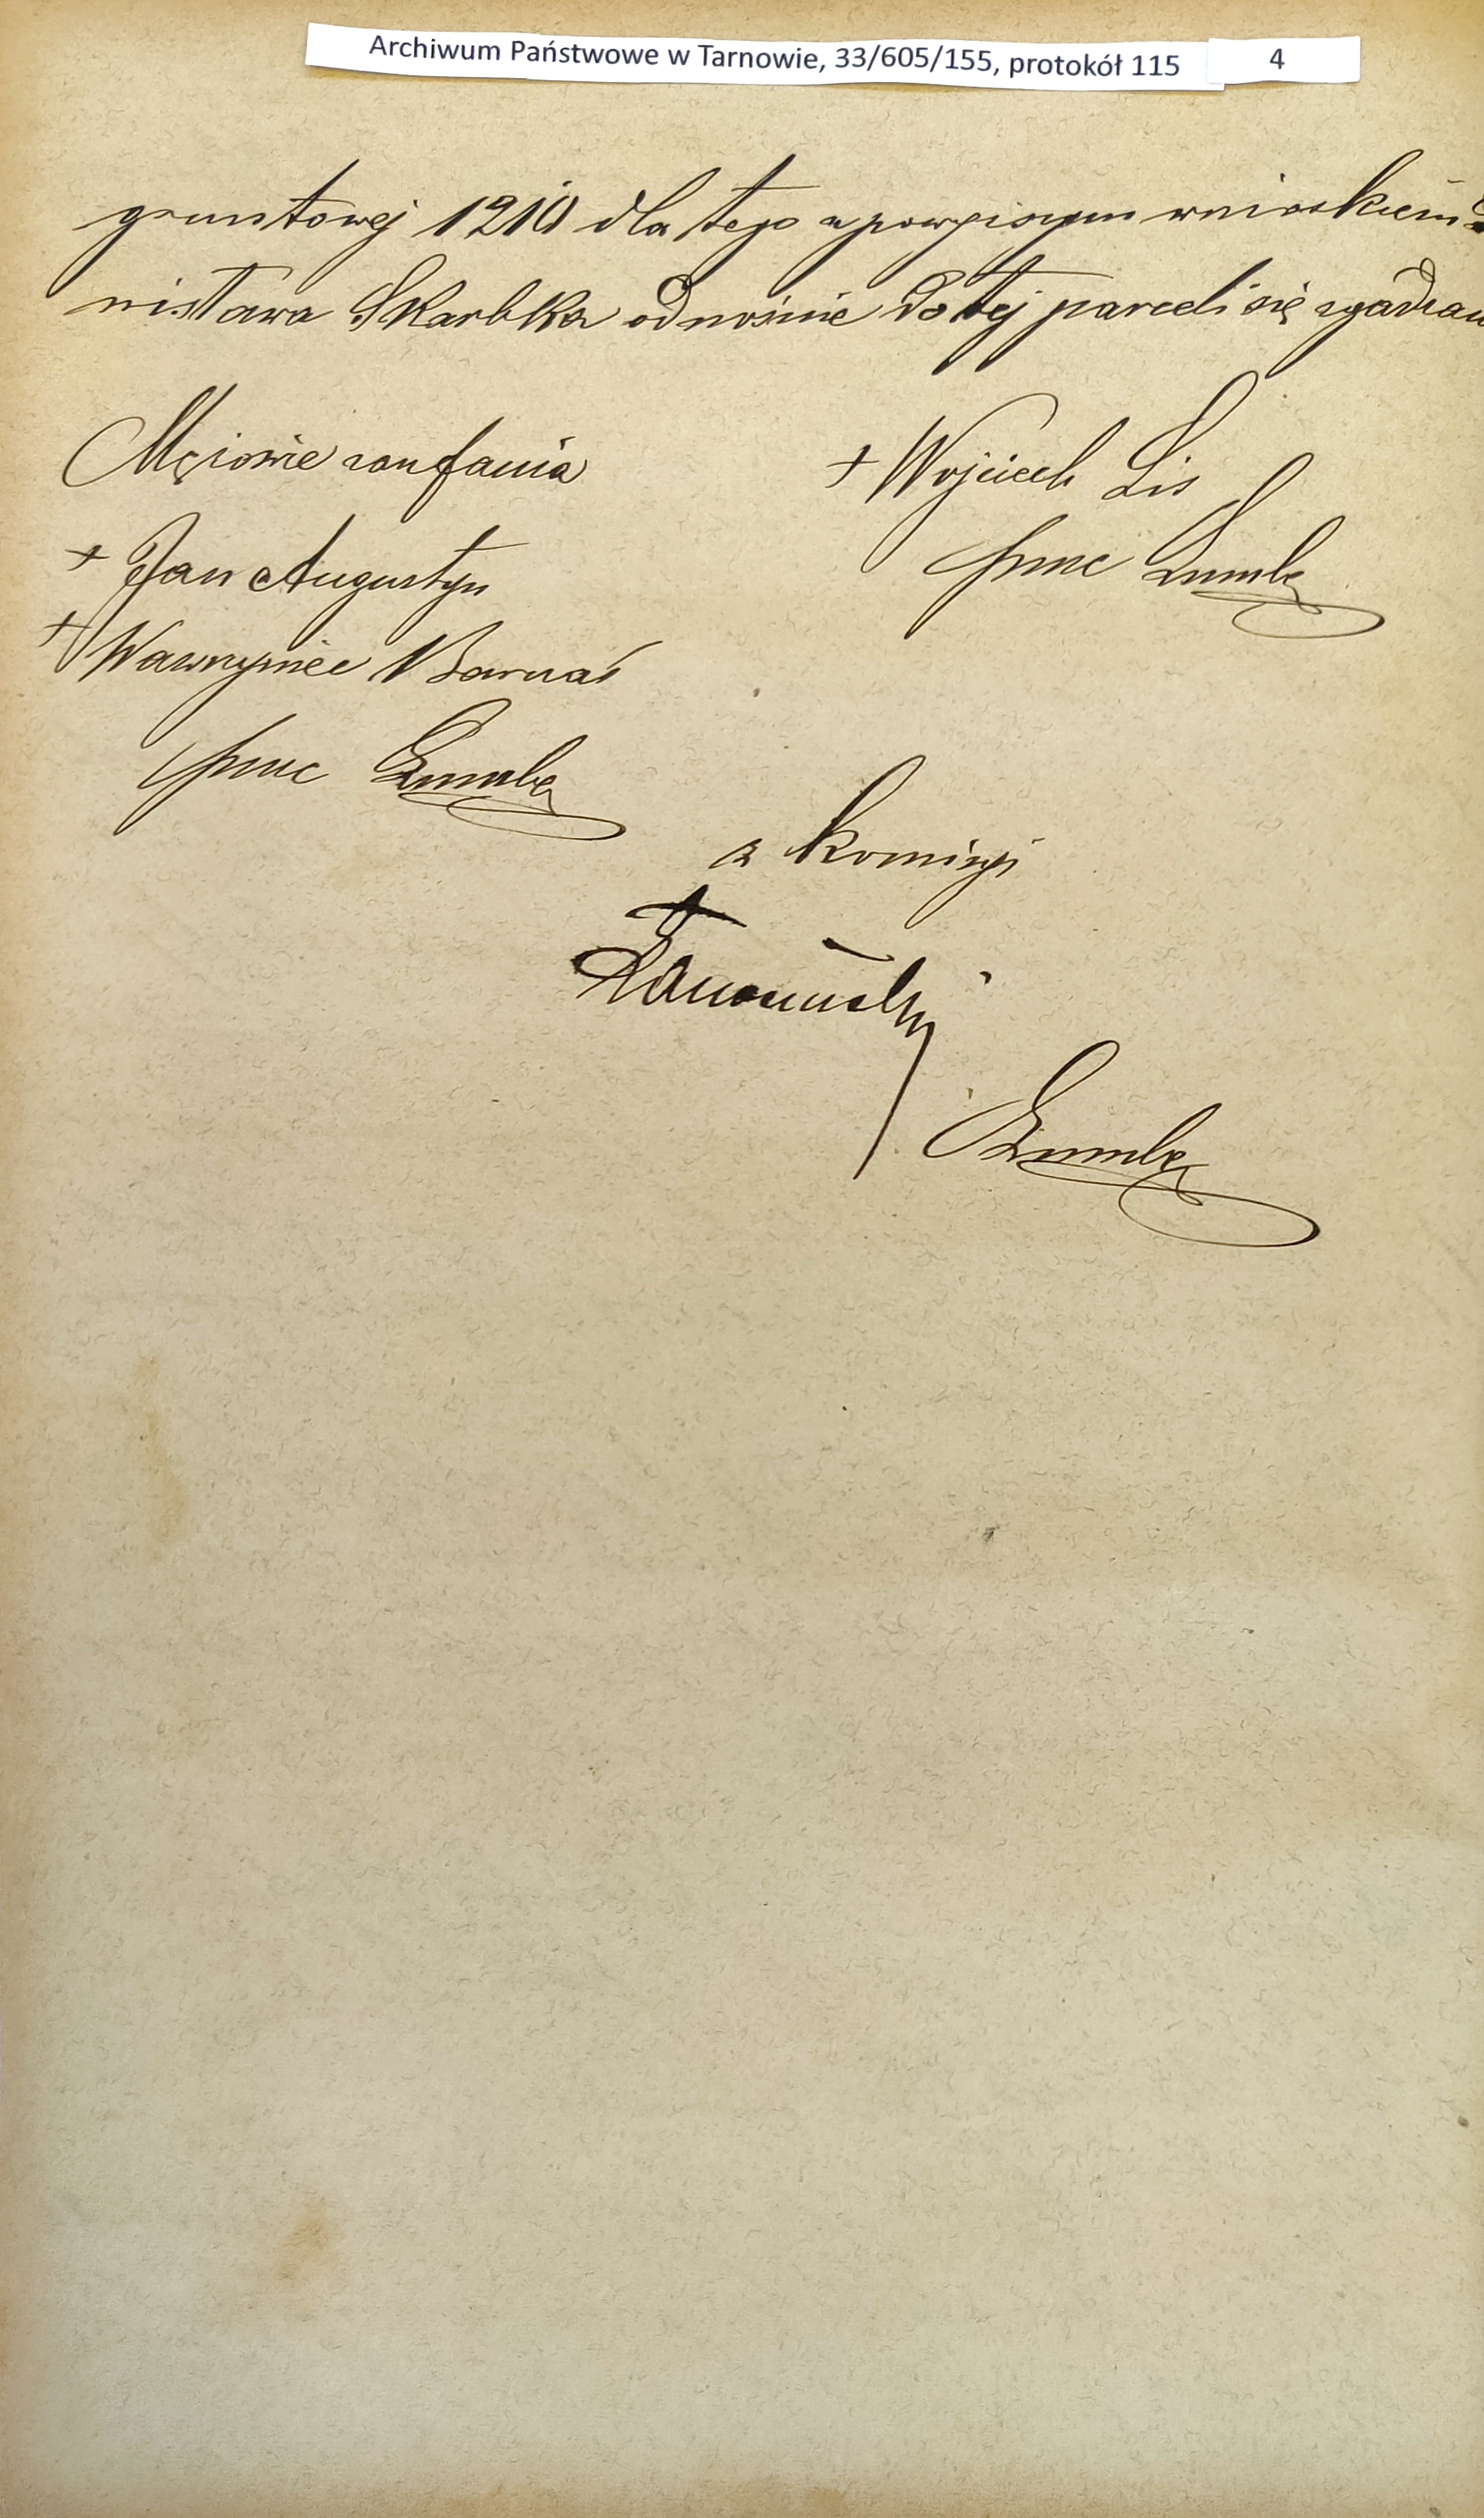 Archiwum Państwowe w Tarnowie, 33/605/155, protokół 115 4
gruntowej 1210 dla tego z powyższym wnioskiem
nisława Skarbka odnośnie do tej parceli się zgadzam
Mężowie zaufania
+ Jan Augustyn
+ Wawrzyniec Barnaś
+ Wojciech Lis
z komisyi